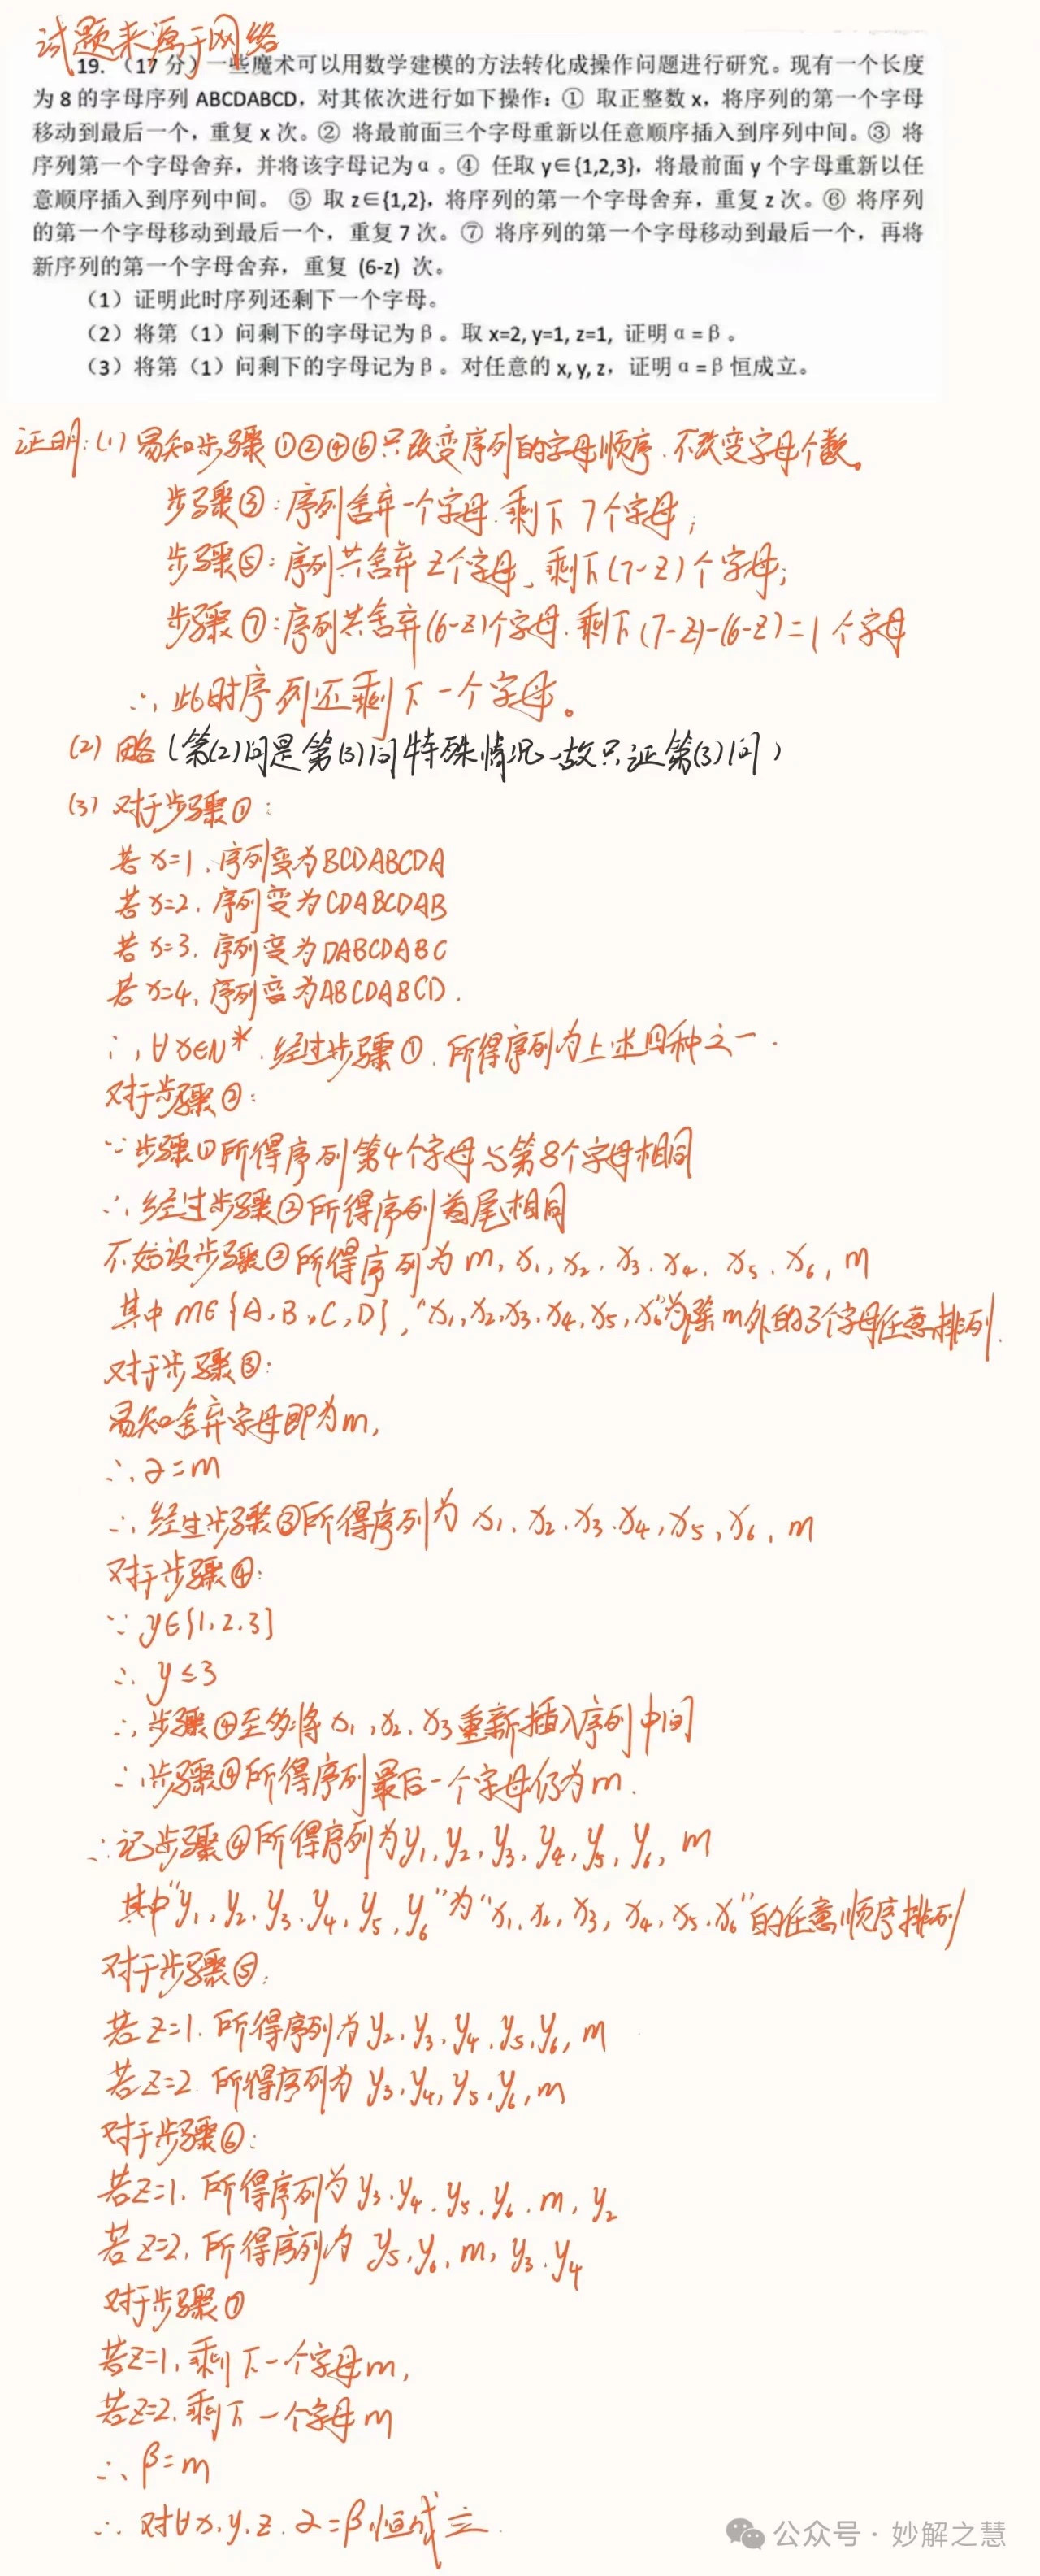 试题来源于网络
19. （17 分）一些魔术可以用数学建模的方法转化成操作问题进行研究。现有一个长度
为 8 的字母序列 ABCDABCD，对其依次进行如下操作：① 取正整数 x，将序列的第一个字母
移动到最后一个，重复 x 次。② 将最前面三个字母重新以任意顺序插入到序列中间。③ 将
序列第一个字母舍弃，并将该字母记为α。④ 任取 y∈{1,2,3}，将最前面 y 个字母重新以任
意顺序插入到序列中间。 ⑤ 取 z∈{1,2}，将序列的第一个字母舍弃，重复 z 次。⑥ 将序列
的第一个字母移动到最后一个，重复 7 次。⑦ 将序列的第一个字母移动到最后一个，再将
新序列的第一个字母舍弃，重复 (6-z) 次。
（1）证明此时序列还剩下一个字母。
（2）将第（1）问剩下的字母记为β。取 x=2, y=1, z=1, 证明α=β。
（3）将第（1）问剩下的字母记为β。对任意的 x, y, z，证明α=β恒成立。
证明：(1) 易知步骤①②④⑥只改变序列的字母顺序，不改变字母个数。
步骤③：序列舍弃一个字母，剩下7个字母；
步骤⑤：序列共舍弃z个字母，剩下(7-z)个字母；
步骤⑦：序列共舍弃(6-z)个字母，剩下(7-z)-(6-z)=1个字母
∴此时序列还剩下一个字母。
(2) 略（第(2)问是第(3)问特殊情况，故只证第(3)问）
(3) 对于步骤①：
若x=1，序列变为BCDABCDA
若x=2，序列变为CDABCDAB
若x=3，序列变为DABCDABC
若x=4，序列变为ABCDABCD.
∴∀x∈N*，经过步骤①，所得序列为上述四种之一.
对于步骤②：
∵步骤①所得序列第4个字母与第8个字母相同
∴经过步骤②所得序列首尾相同
不妨设步骤②所得序列为m, x₁, x₂, x₃, x₄, x₅, x₆, m
其中m∈{A,B,C,D}，“x₁,x₂,x₃,x₄,x₅,x₆”为除m外的3个字母任意排列.
对于步骤③：
易知舍弃字母即为m,
∴α=m
∴经过步骤③所得序列为x₁, x₂, x₃, x₄, x₅, x₆, m
对于步骤④：
∵y∈{1,2,3}
∴y≤3
∴步骤④至多将x₁, x₂, x₃重新插入序列中间
∴步骤④所得序列最后一个字母仍为m.
∴记步骤④所得序列为y₁, y₂, y₃, y₄, y₅, y₆, m
其中“y₁, y₂, y₃, y₄, y₅, y₆”为“x₁, x₂, x₃, x₄, x₅, x₆”的任意顺序排列
对于步骤⑤：
若z=1，所得序列为y₂, y₃, y₄, y₅, y₆, m
若z=2，所得序列为y₃, y₄, y₅, y₆, m
对于步骤⑥：
若z=1，所得序列为y₃, y₄, y₅, y₆, m, y₂
若z=2，所得序列为y₅, y₆, m, y₃, y₄
对于步骤⑦
若z=1，剩下一个字母m,
若z=2，剩下一个字母m
∴β=m
∴对∀x,y,z，α=β恒成立.
公众号·妙解之慧